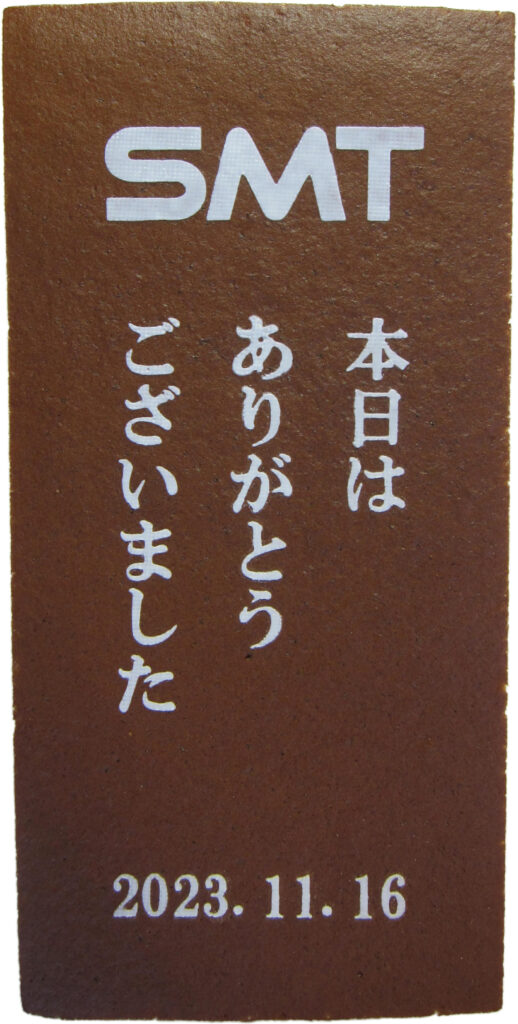 SMT
本日は
ありがとう
ございました
2023.11.16